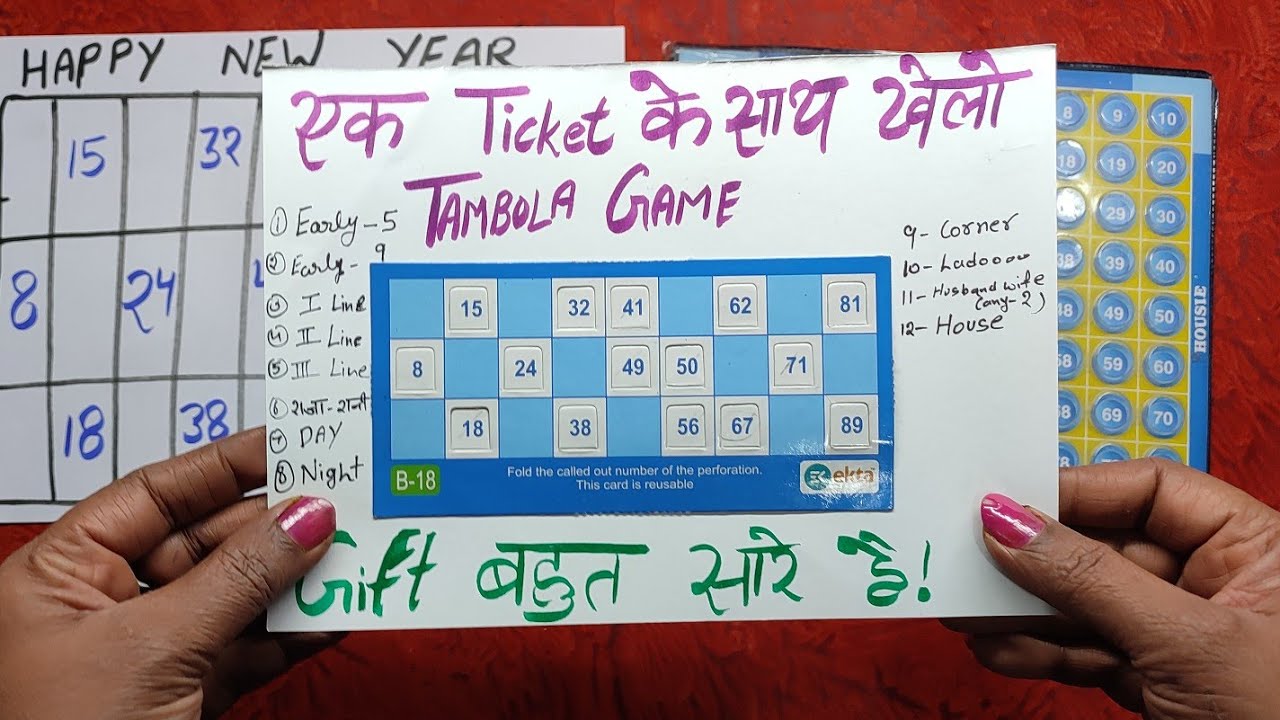 HAPPY NEW YEAR
15 32
8 24
18 38
एक Ticket के साथ खेलो
TAMBOLA GAME
① Early - 5
② Early - 9
③ I Line
④ II Line
⑤ III Line
⑥ राजा - रानी
⑦ DAY
⑧ Night
9 - Corner
10 - Ladoooo
11 - Husband wife
(any - 2)
12 - House
15 32 41 62 81
8 24 49 50 71
18 38 56 67 89
B-18
Fold the called out number of the perforation.
This card is reusable
ekta
Gift बहुत सारे है!
8 9 10
18 19 20
29 30
38 39 40
48 49 50
58 59 60
68 69 70
HOUSIE